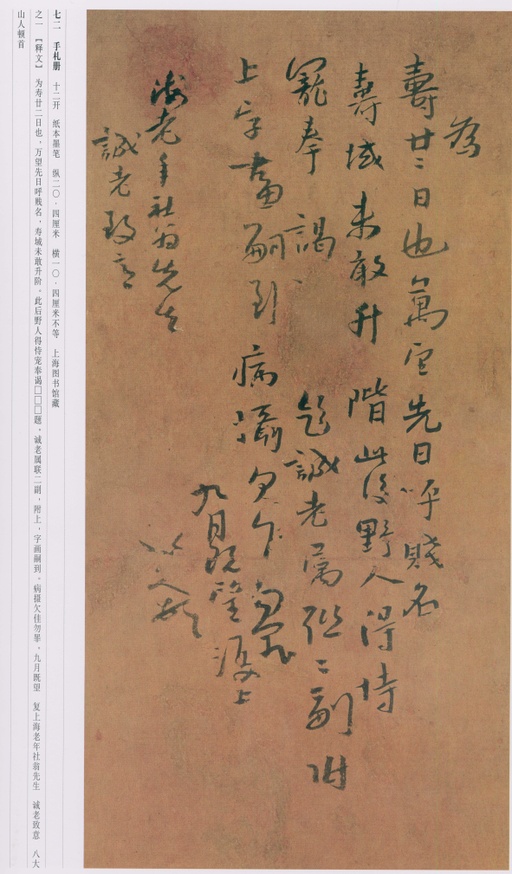 為
壽廿二日也萬望先日呼賤名
壽域未敢升階此後野人得恃
寵奉謁
題誠老属聯二副附
上字畫嗣到病攝欠佳
九月既望復上
海老年社翁先生
誠老致意
八大山人頓首
七二 手札册 十二开 纸本墨笔 纵二〇·四厘米 横一〇·四厘米不等 上海图书馆藏
之一 【释文】 为寿廿二日也，万望先日呼贱名，寿域未敢升阶。此后野人得恃宠奉谒□□□题。诚老属联二副，附上，字画嗣到。病摄欠佳勿罪，九月既望 复上海老年社翁先生 诚老致意 八大
山人顿首